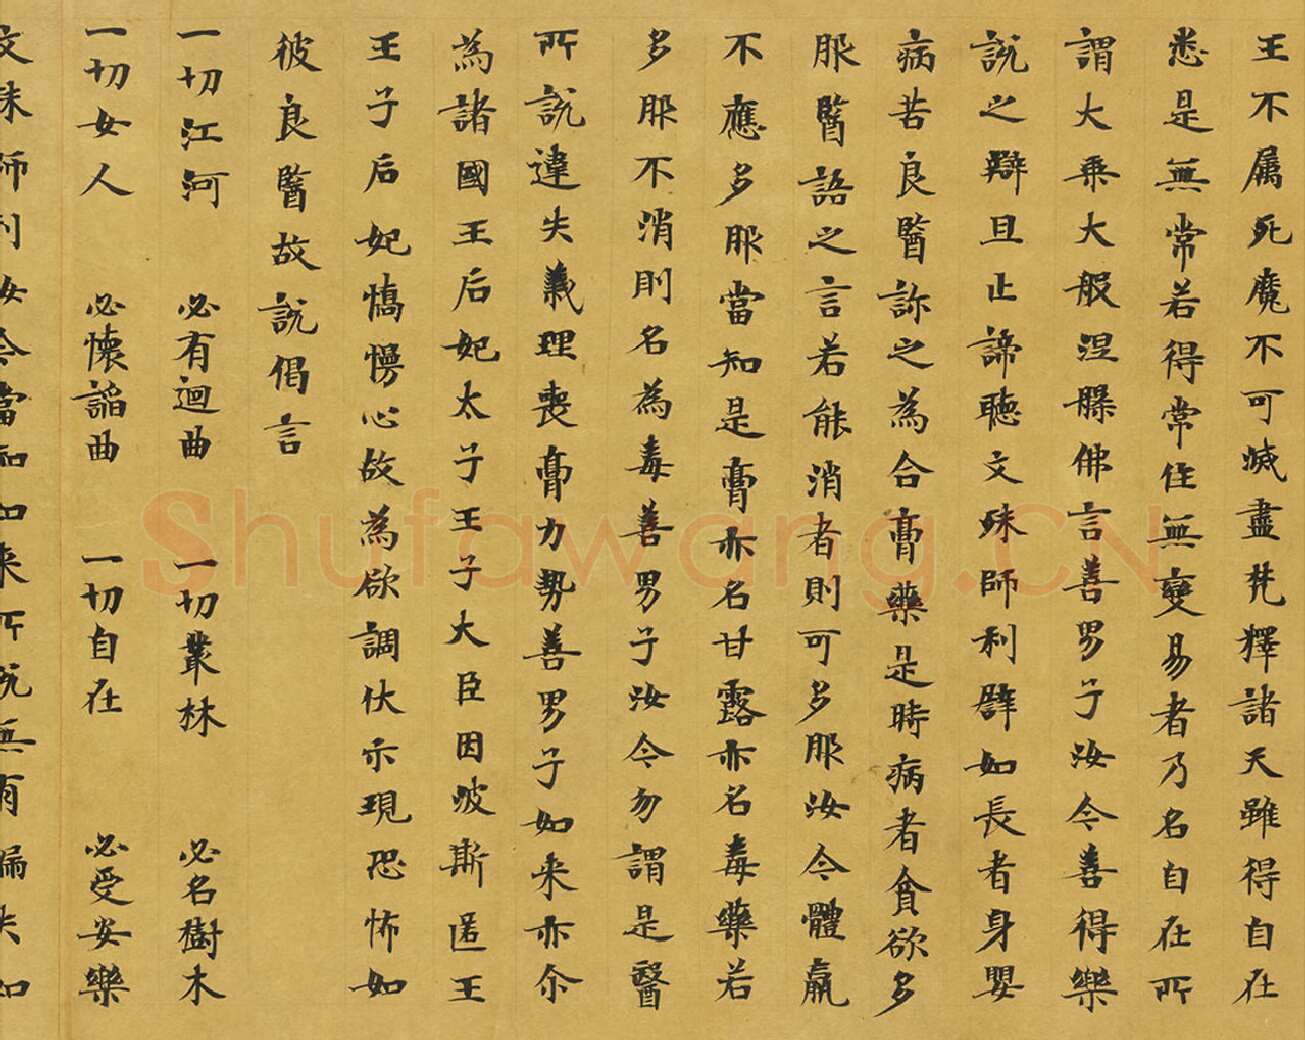 王不属死魔不可滅盡梵釋諸天雖得自在
悉是無常若得常住無變易者乃名自在所
謂大乗大般涅槃佛言善男子汝今善得樂
說之辯且止諦聽文殊師利譬如長者身嬰
病苦良醫診之為合膏藥是時病者貪欲多
服醫語之言若能消者則可多服汝今體羸
不應多服當知是膏亦名甘露亦名毒藥若
多服不消則名為毒善男子汝今勿謂是醫
所說違失義理喪膏力勢善男子如来亦尒
為諸國王后妃太子王子大臣因波斯匿王
王子后妃憍慢心故為欲調伏示現恐怖如
彼良醫故說偈言
一切江河 必有迴曲 一切叢林 必名樹木
一切女人 必懷謟曲 一切自在 必受安樂
文殊師利汝今當知如来所說無有漏失如
Shufawang.CN